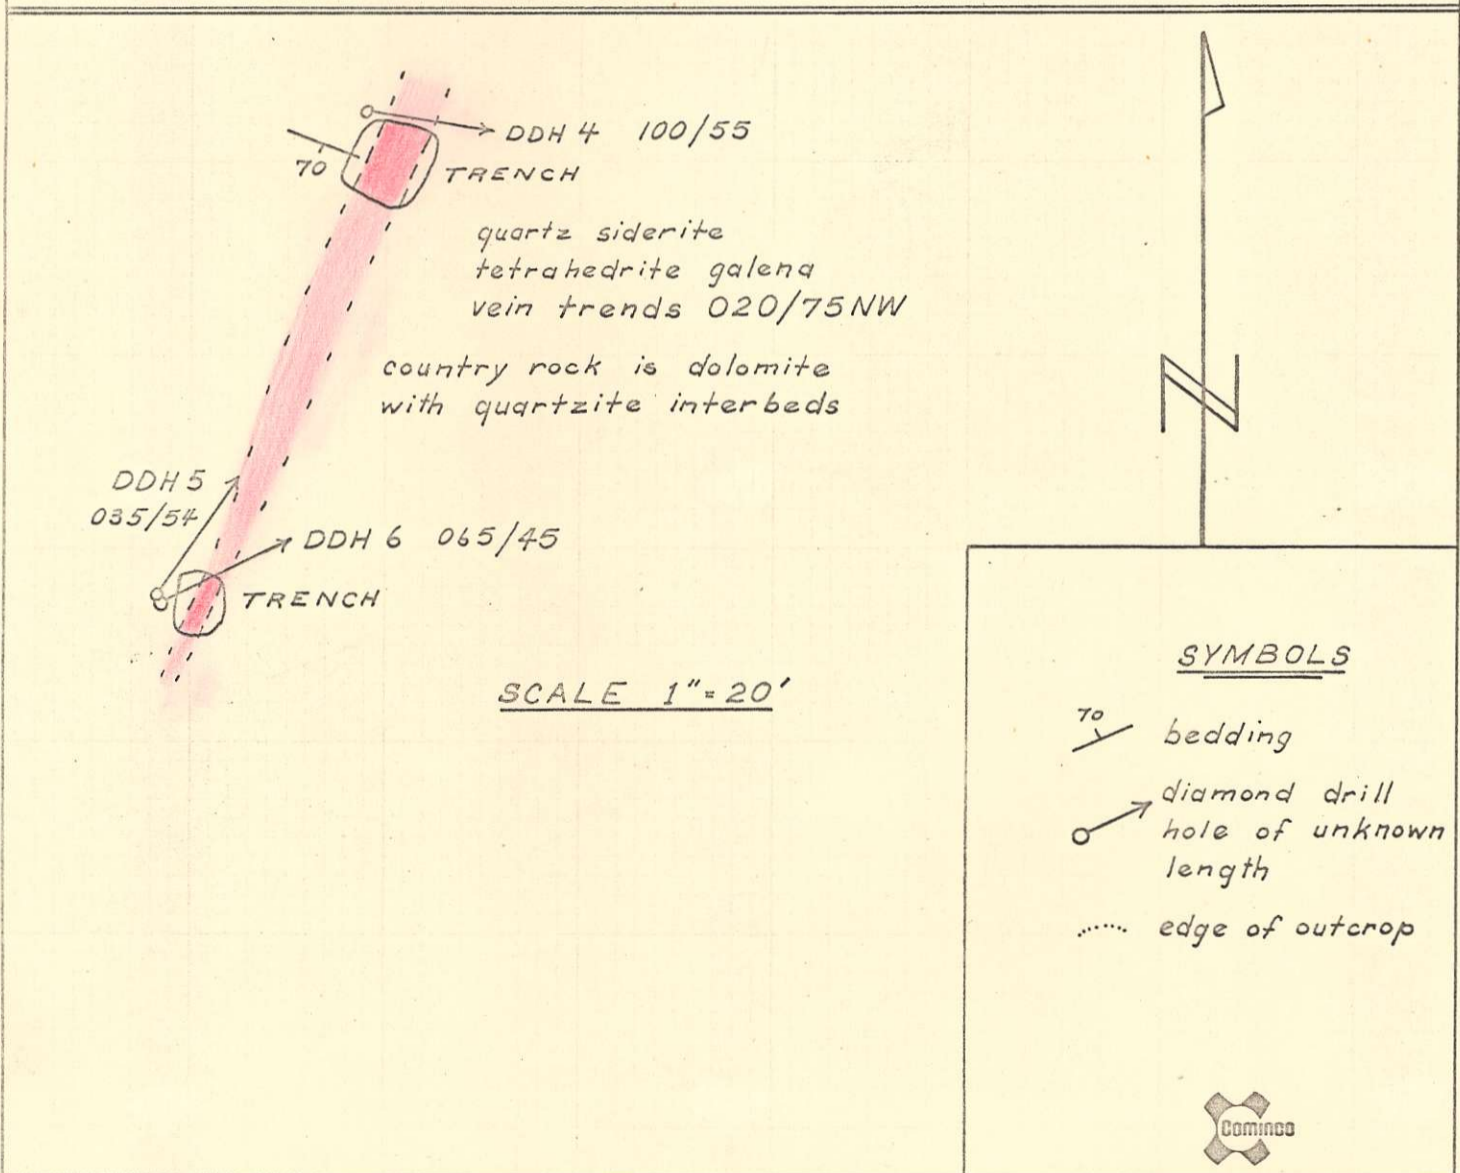 DDH 4 100/55
70
TRENCH
quartz siderite
tetrahedrite galena
vein trends 020/75NW
country rock is dolomite
with quartzite interbeds
DDH 5
035/54
DDH 6 065/45
TRENCH
SCALE 1"=20'
N
SYMBOLS
70
bedding
diamond drill
hole of unknown
length
edge of outcrop
Cominco